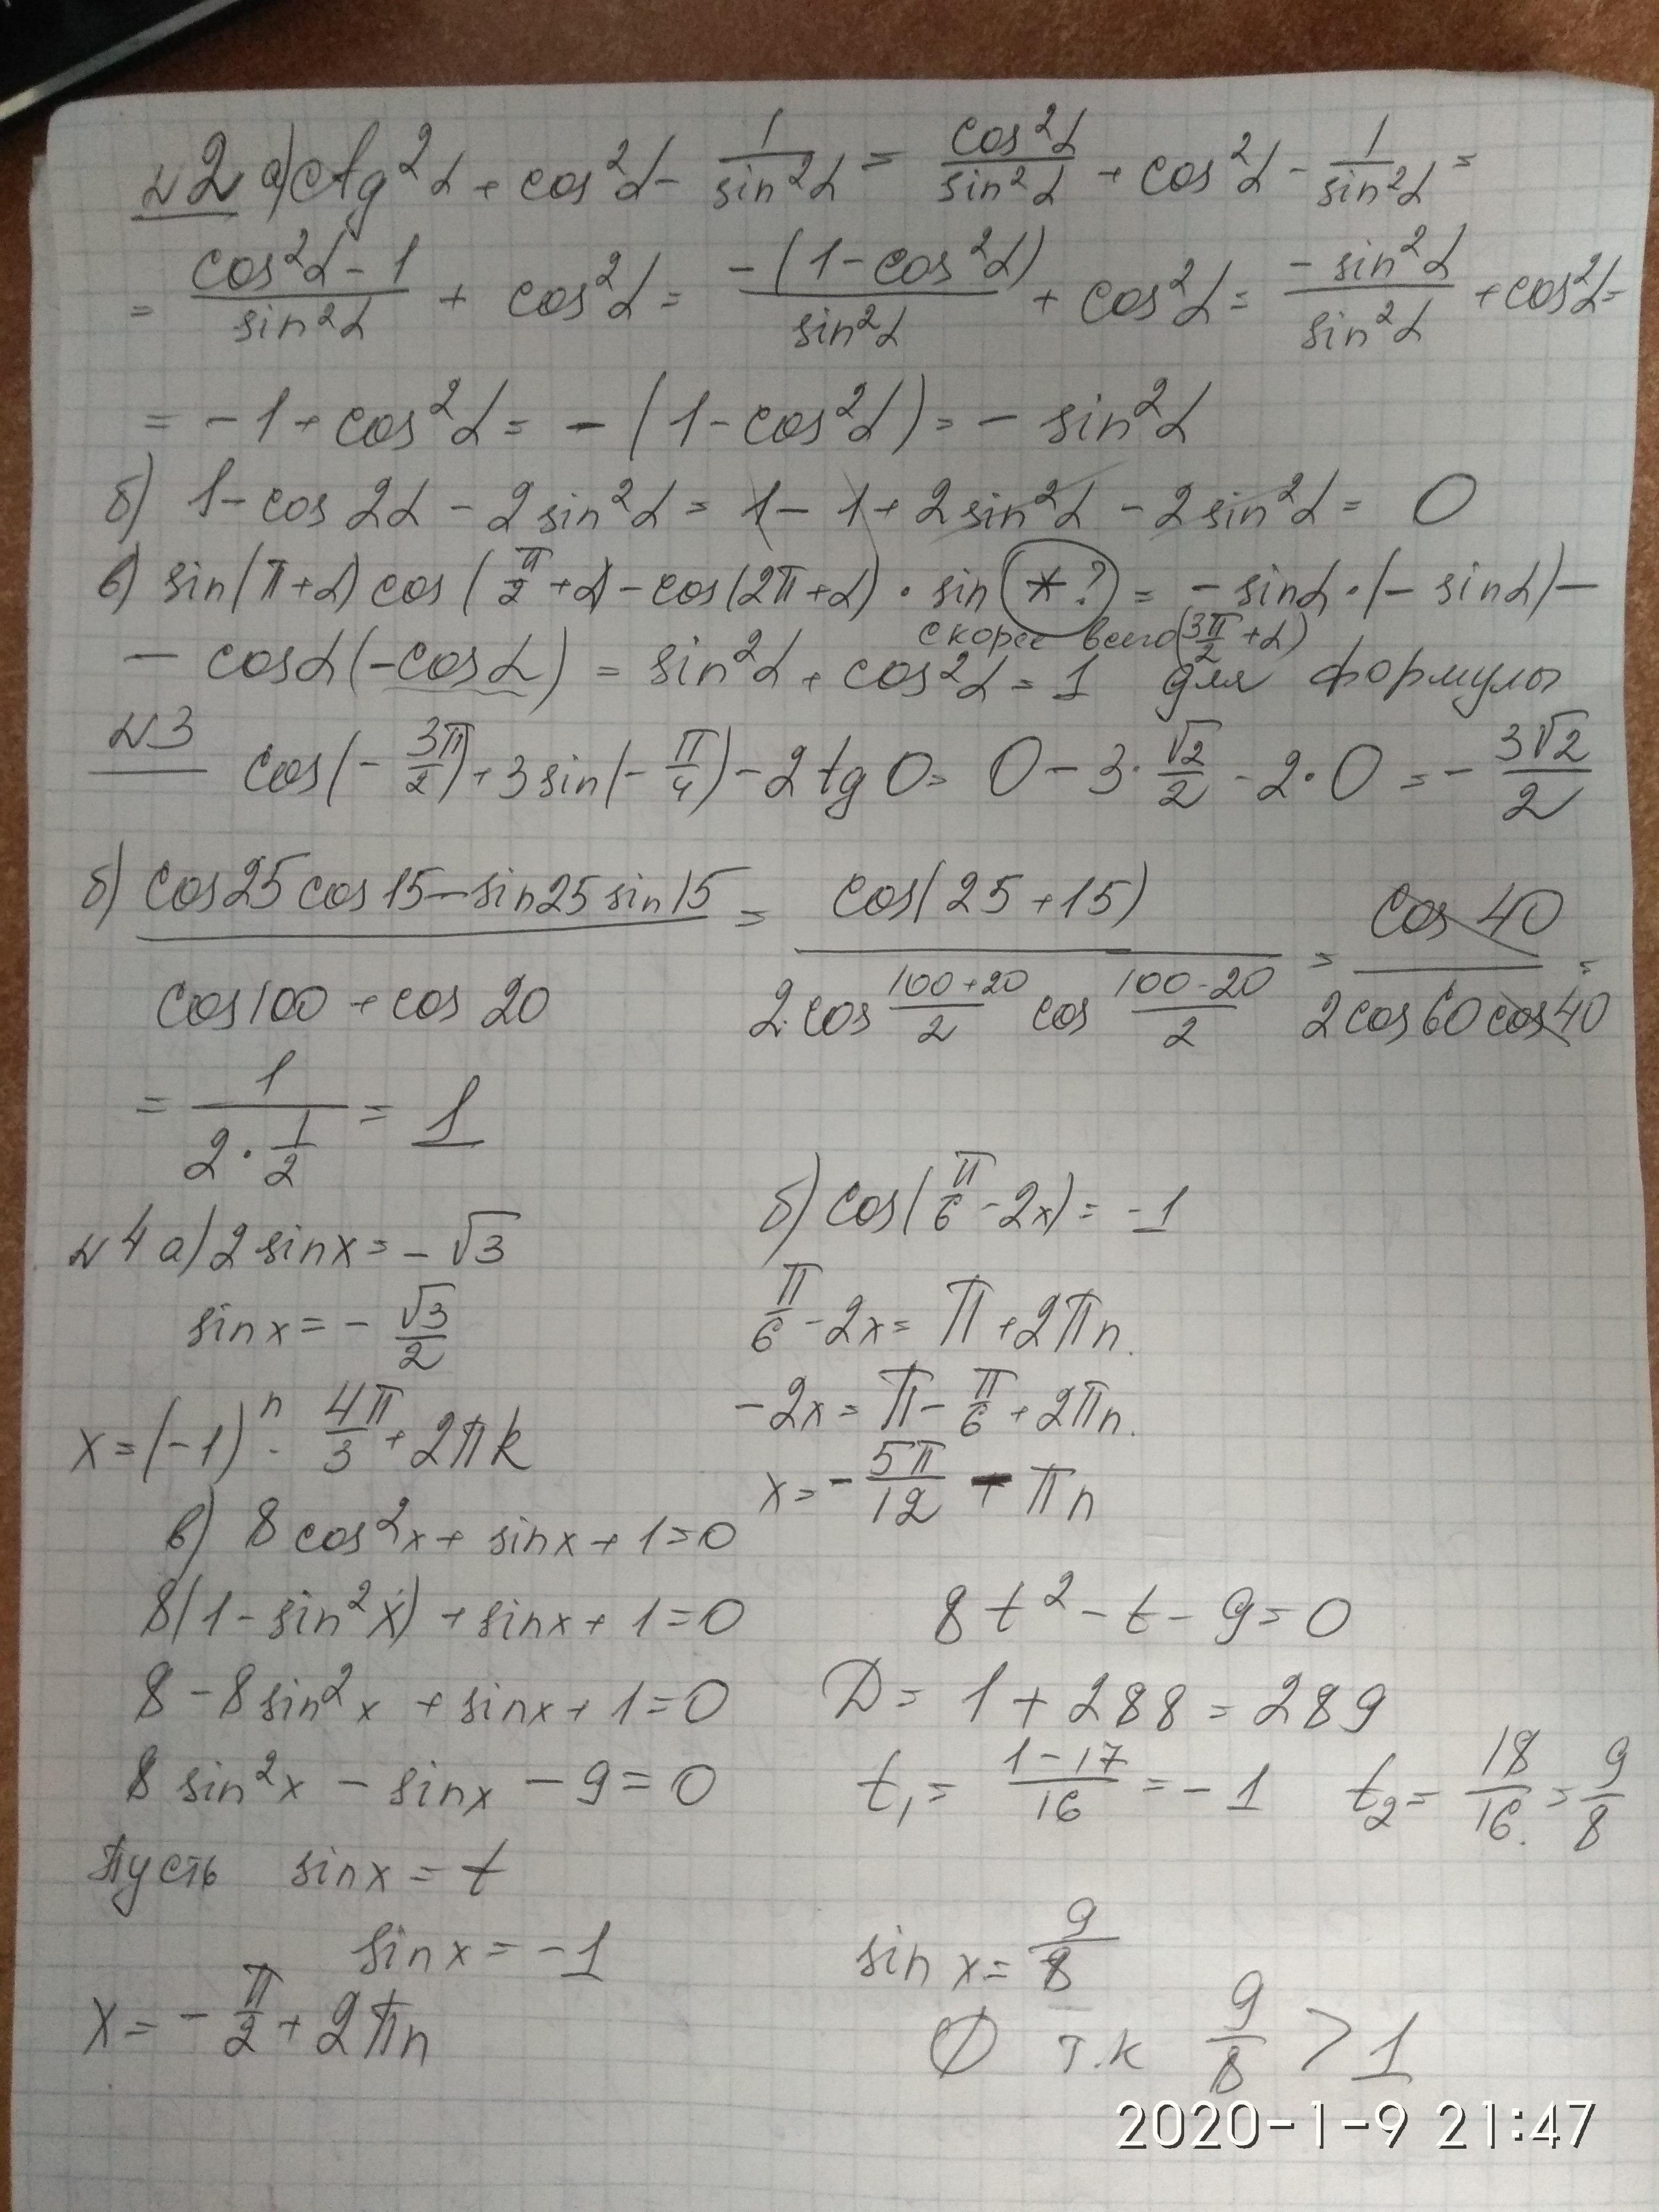 №2 а) ctg²α + cos²α - 1/sin²α = cos²α/sin²α + cos²α - 1/sin²α =
= (cos²α - 1)/sin²α + cos²α = -(1 - cos²α)/sin²α + cos²α = -sin²α/sin²α + cos²α =
= -1 + cos²α = -(1 - cos²α) = - sin²α
б) 1 - cos 2α - 2 sin²α = 1 - 1 + 2 sin²α - 2 sin²α = 0
в) sin(π+α) cos(π/2 + α) - cos(2π+α) · sin (*?) = - sinα · (- sinα) -
скорее всего (3π/2 + α)
- cosα(-cosα) = sin²α + cos²α = 1 для формулы
№3 cos(-3π/2) + 3 sin(-π/4) - 2 tg 0 = 0 - 3·√2/2 - 2·0 = - 3√2/2
б) (cos25 cos15 - sin25 sin15)/(cos100 + cos 20) = cos(25+15)/(2·cos (100+20)/2 cos (100-20)/2) = cos 40/(2cos60 cos40) =
= 1/(2·1/2) = 1
№4 а) 2 sinx = - √3
sinx = - √3/2
x = (-1)ⁿ · 4π/3 + 2πk
б) cos(π/6 - 2x) = -1
π/6 - 2x = π + 2πn.
-2x = π - π/6 + 2πn.
x = - 5π/12 - πn
в) 8 cos²x + sinx + 1 = 0
8(1 - sin²x) + sinx + 1 = 0
8 - 8sin²x + sinx + 1 = 0
8 sin²x - sinx - 9 = 0
Пусть sinx = t
8t² - t - 9 = 0
D = 1 + 288 = 289
t₁ = (1-17)/16 = -1 t₂ = 18/16 = 9/8
sinx = -1
x = - π/2 + 2πn
sin x = 9/8
∅ т.к 9/8 > 1
2020-1-9 21:47